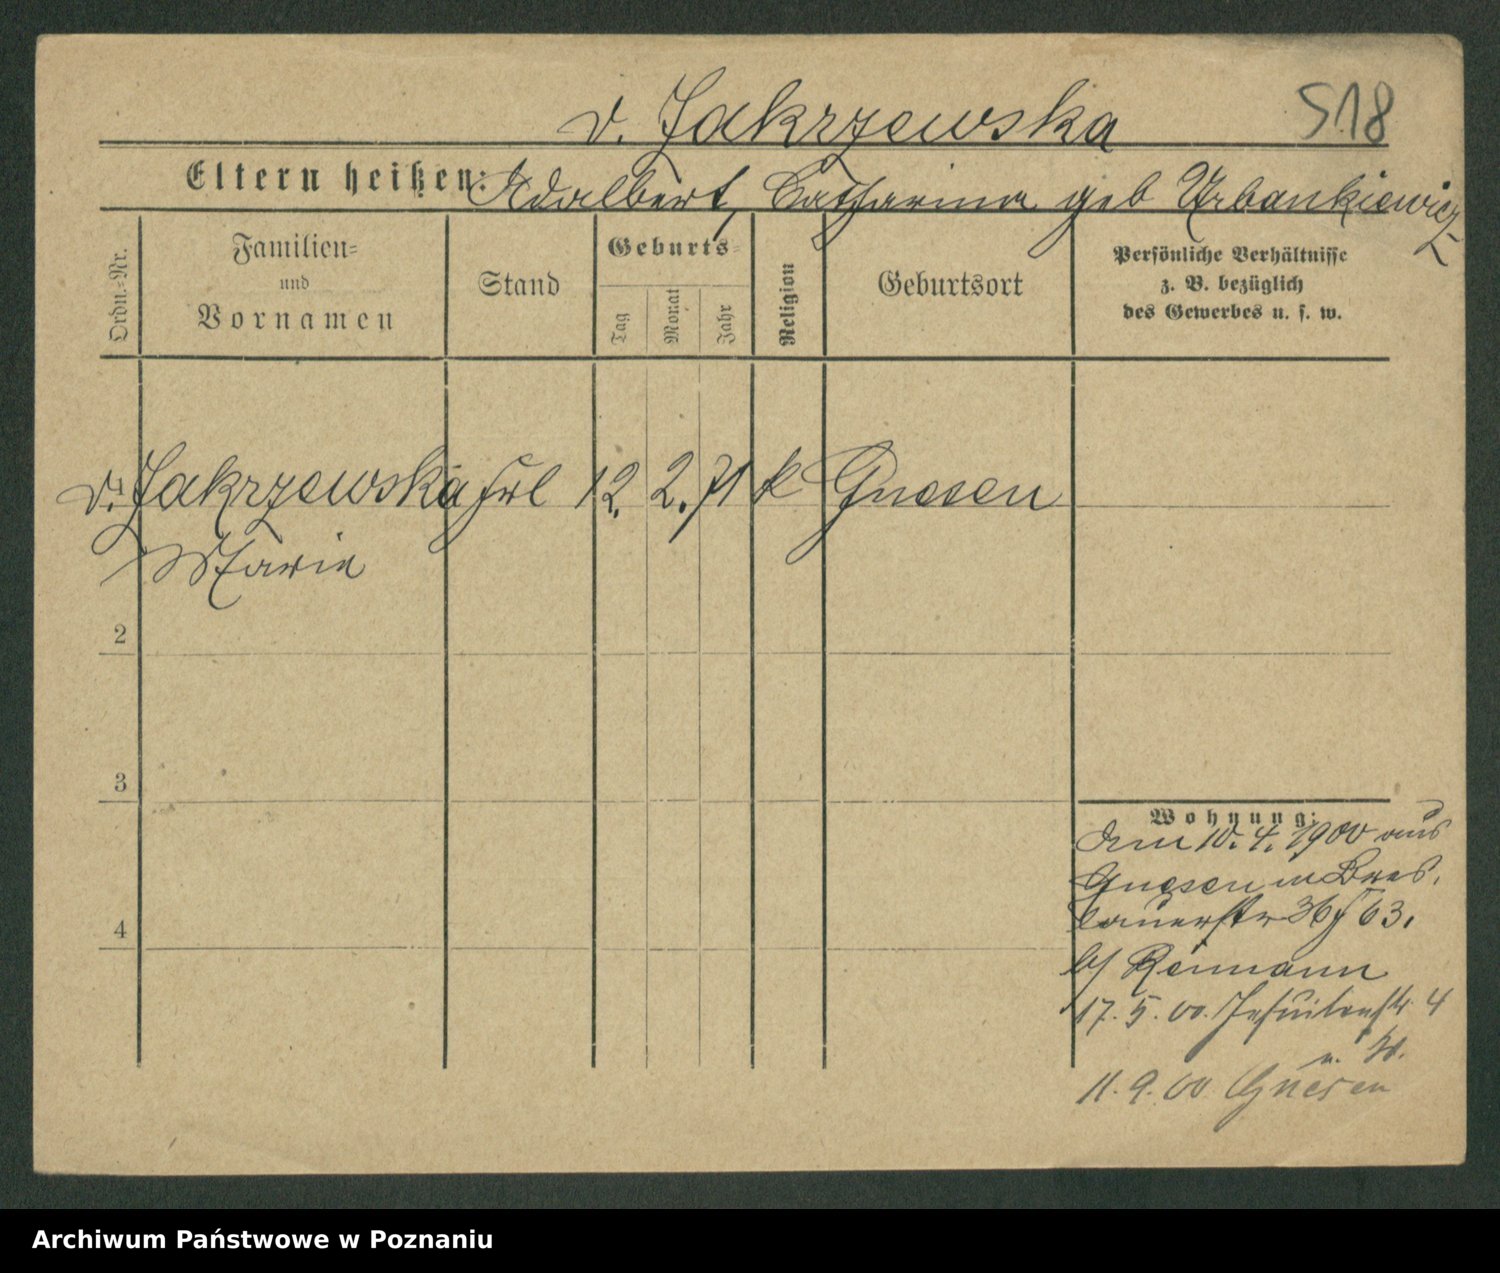 v. Zakrzewska
518
Eltern heißen: Adalbert, Catharina geb Urbankiewicz
Ordn.=Nr.
Familien=
und
Vornamen
Stand
Geburts=
Tag
Monat
Jahr
Religion
Geburtsort
Persönliche Verhältnisse
z. B. bezüglich
des Gewerbes u. s. w.
v. Zakrzewska Frl 12. 2. 71 k Gnesen
Marie
2
3
4
Wohnung:
den 10. 4. 1900 aus
Gnesen
36 63.
b/ Reimann
17. 5. 00. Jesuitenstr. 4
11. 9. 00 Gnesen
Archiwum Państwowe w Poznaniu